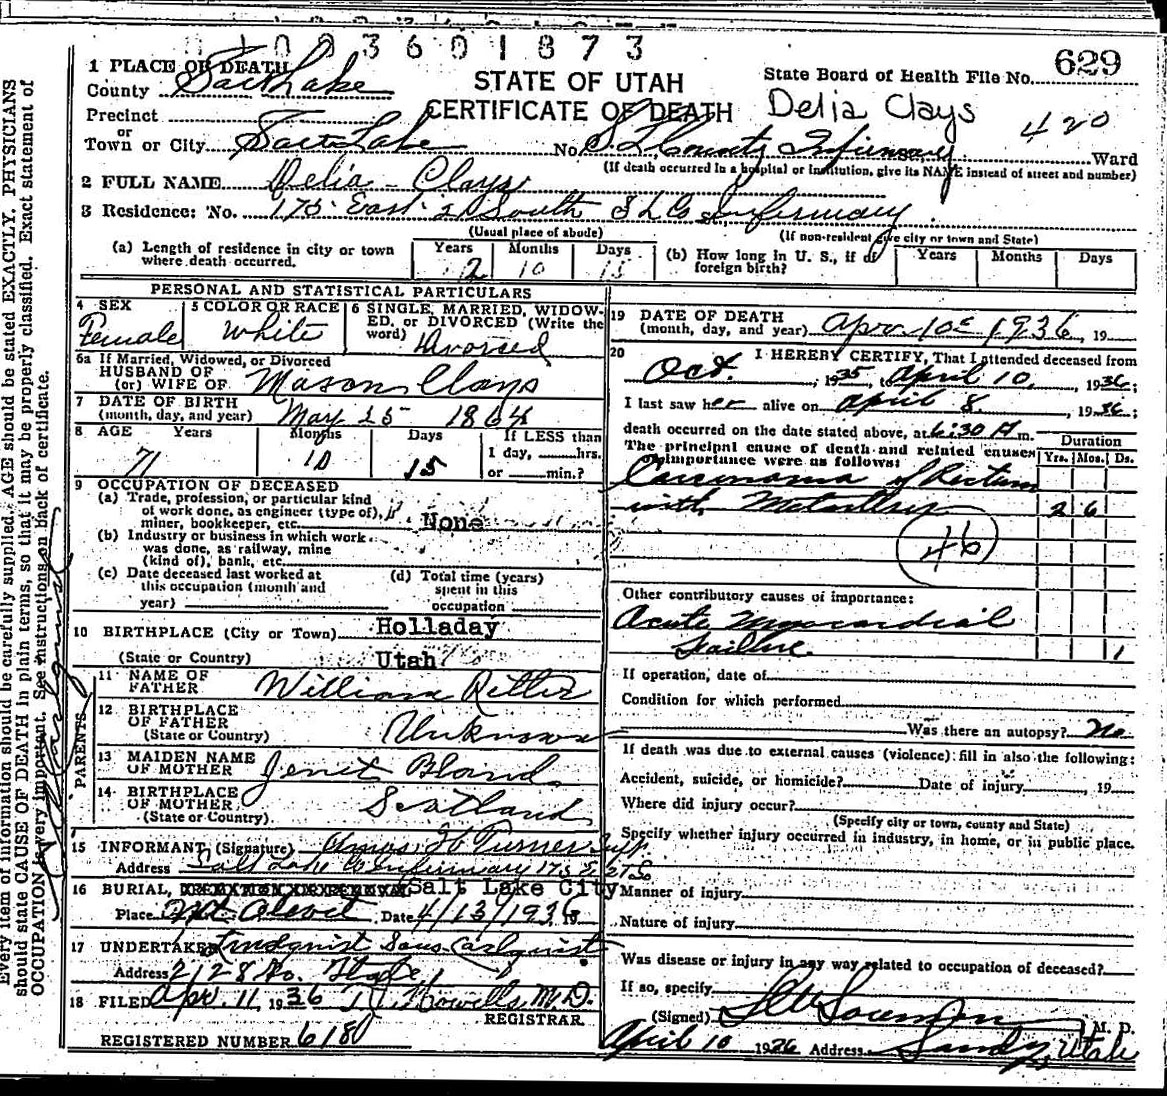 01003601873
629
1 PLACE OF DEATH
STATE OF UTAH
State Board of Health File No.
County Salt Lake
CERTIFICATE OF DEATH
Delia Clays
Precinct
420
or
Town or City Salt Lake No. S L County Infirmary Ward
(If death occurred in a hospital or institution, give its NAME instead of street and number)
2 FULL NAME Delia - Clays
3 Residence: No. 175 East 21 South S L Co Infirmary
(Usual place of abode) (If non-resident give city or town and State)
(a) Length of residence in city or town where death occurred. Years 2 Months 10 Days 15
(b) How long in U. S., if of foreign birth? Years Months Days
PERSONAL AND STATISTICAL PARTICULARS
4 SEX Female
5 COLOR OR RACE White
6 SINGLE, MARRIED, WIDOWED, or DIVORCED (Write the word) Divorced
6a If Married, Widowed, or Divorced
HUSBAND OF
(or) WIFE OF Mason Clays
7 DATE OF BIRTH
(month, day, and year) May 25 1864
8 AGE Years 71 Months 10 Days 15
If LESS than 1 day, hrs. or min.?
9 OCCUPATION OF DECEASED
(a) Trade, profession, or particular kind of work done, as engineer (type of), miner, bookkeeper, etc. None
(b) Industry or business in which work was done, as railway, mine (kind of), bank, etc.
(c) Date deceased last worked at this occupation (month and year)
(d) Total time (years) spent in this occupation
10 BIRTHPLACE (City or Town) Holladay
(State or Country) Utah
PARENTS
11 NAME OF FATHER William Ritter
12 BIRTHPLACE OF FATHER
(State or Country) Unknown
13 MAIDEN NAME OF MOTHER Jenet Bland
14 BIRTHPLACE OF MOTHER
(State or Country) Scotland
15 INFORMANT (Signature) Amos H Turner Supt
Address Salt Lake Co Infirmary 175 E 21 So
16 BURIAL, Salt Lake City
Place Mt. Olevit Date 4/13/1936
17 UNDERTAKER Lindquist Sons Carlquist
Address 2128 So. State
18 FILED Apr. 11 1936 Howells M.D.
REGISTRAR
REGISTERED NUMBER 6180
19 DATE OF DEATH
(month, day, and year) Apr. 10 1936, 19
20 I HEREBY CERTIFY, That I attended deceased from
Oct. , 1935, to April 10, 1936;
I last saw her alive on April 8, 1936;
death occurred on the date stated above, at 6:30 A m.
The principal cause of death and related causes of importance were as follows:
Duration
Yrs. Mos. Ds.
Carcinoma of Rectum
with 2 6
46
Other contributory causes of importance:
Acute Myocardial
Failure 1
If operation, date of
Condition for which performed
Was there an autopsy? No
If death was due to external causes (violence) fill in also the following:
Accident, suicide, or homicide? Date of injury , 19
Where did injury occur?
(Specify city or town, county and State)
Specify whether injury occurred in industry, in home, or in public place.
Manner of injury
Nature of injury
Was disease or injury in any way related to occupation of deceased?
If so, specify
(Signed) M. D.
April 10 1936 Address Sandy, Utah
Every item of information should be carefully supplied. AGE should be stated EXACTLY. PHYSICIANS
should state CAUSE OF DEATH in plain terms, so that it may be properly classified. Exact statement of
OCCUPATION is very important. See instructions on back of certificate.